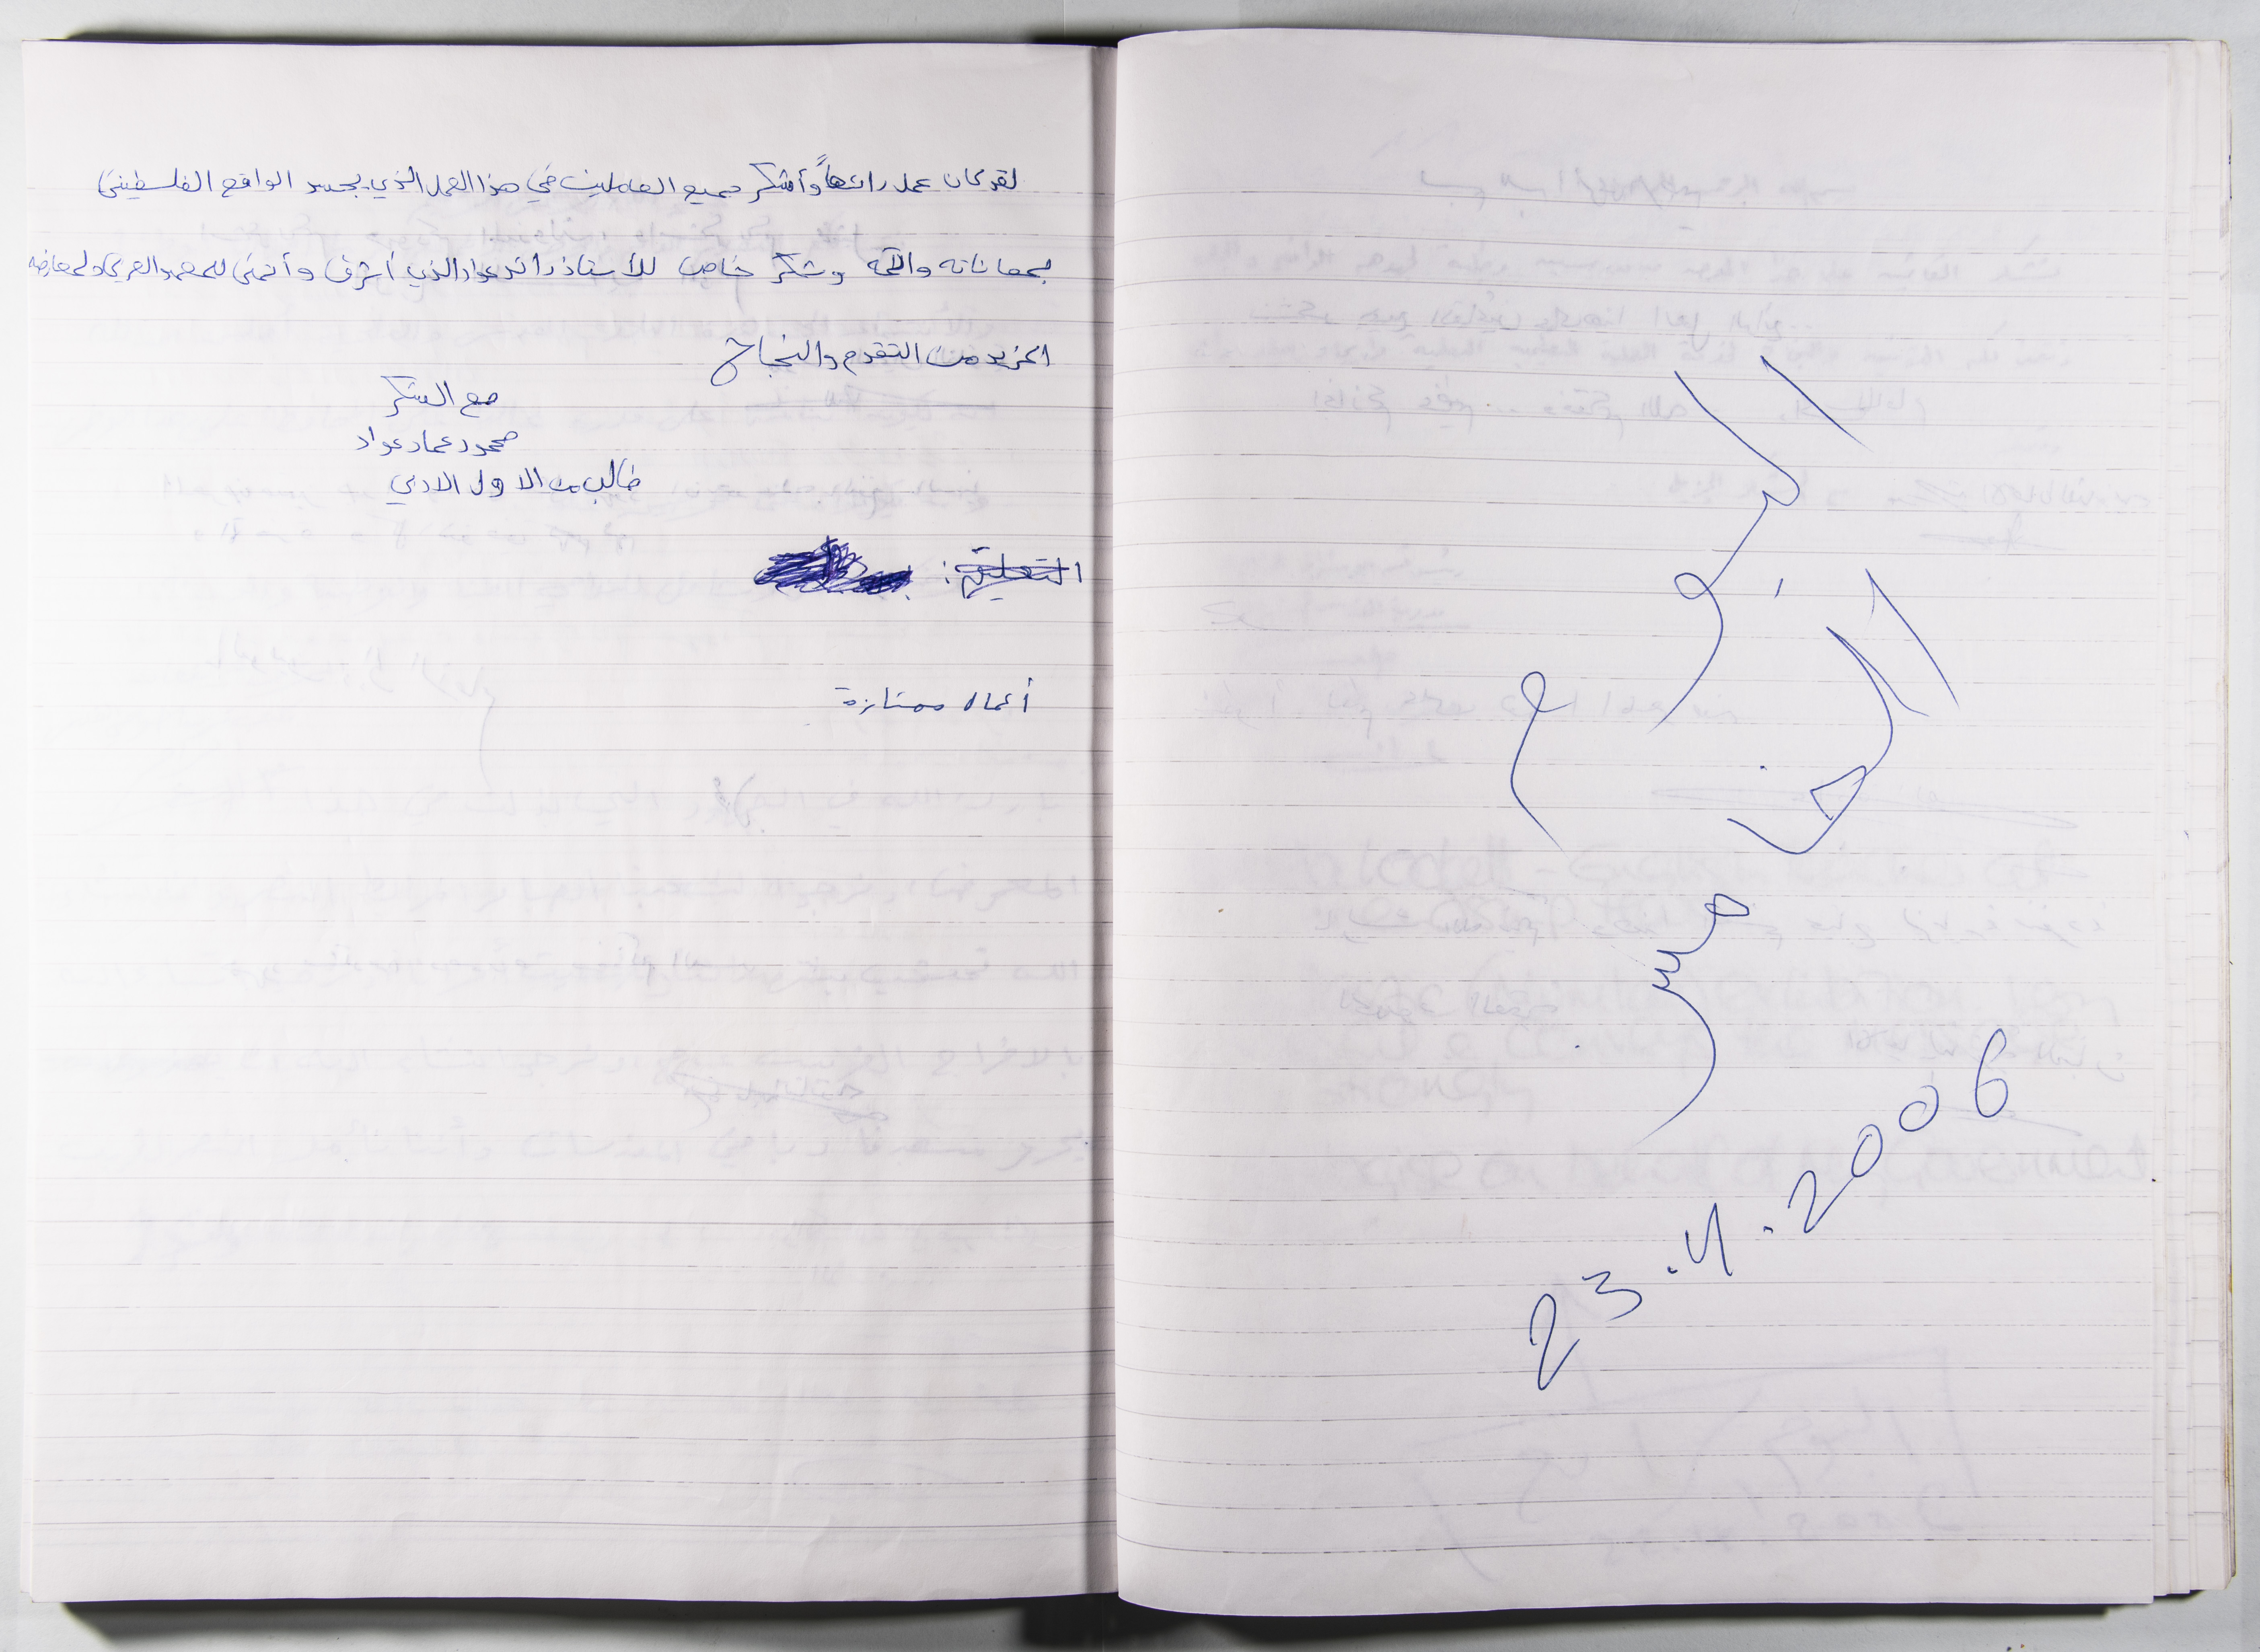 اليوم
الخامس
23.4.2006
لقد كان عمل رائعاً وأشكر جميع العاملين في هذا العمل الذي يجسد الواقع الفلسطيني
بمعاناته وآلامه وشكر خاص للأستاذ رائد عواد الذي أشرف وأتمنى للمعهد العربي ولمعارضه
المزيد من التقدم والنجاح
مع الشكر
محمود عماد عواد
طالب من الاول الادبي
التعليق:
أعمال ممتازة